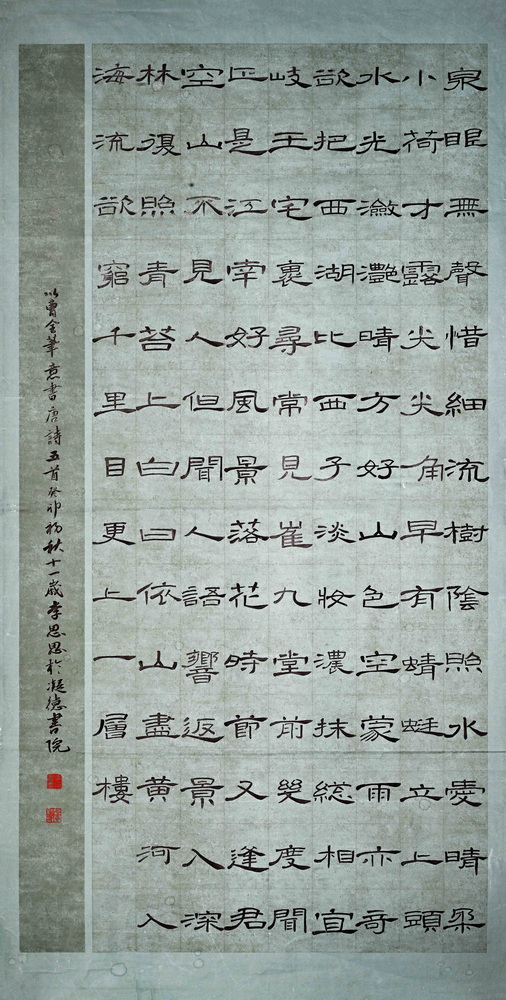 泉眼無聲惜細流樹陰照水愛晴柔
小荷才露尖尖角早有蜻蜓立上頭
水光瀲灔晴方好山色空蒙雨亦奇
欲把西湖比西子淡妝濃抹緫相宜
岐王宅裏尋常見崔九堂前幾度聞
正是江南好風景落花時節又逢君
空山不見人但聞人語響返景入深
林復照青苔上白日依山盡黃河入
海流欲窮千里目更上一層樓
以曹全筆意書唐詩五首癸卯初秋十一歲李思思於凝德書院